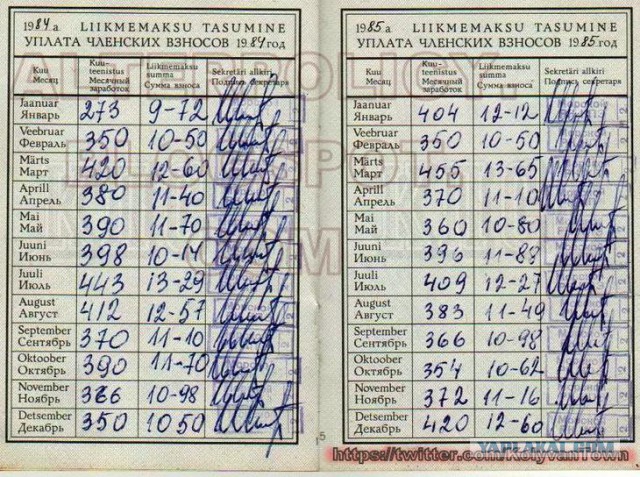 1984.a LIIKMEMAKSU TASUMINE
УПЛАТА ЧЛЕНСКИХ ВЗНОСОВ 1984 год
Kuu Kuu-teenistus Liikmemaksu summa Sekretäri allkiri
Месяц Месячный заработок Сумма взноса Подпись секретаря
Jaanuar
Январь 273 9-72
Veebruar
Февраль 350 10-50
Märts
Март 420 12-60
Aprill
Апрель 380 11-40
Mai
Май 390 11-70
Juuni
Июнь 398 10-14
Juuli
Июль 443 13-29
August
Август 412 12-57
September
Сентябрь 370 11-10
Oktoober
Октябрь 390 11-70
November
Ноябрь 366 10-98
Detsember
Декабрь 350 10 50
1985 a LIIKMEMAKSU TASUMINE
УПЛАТА ЧЛЕНСКИХ ВЗНОСОВ 1985 год
Kuu Kuu-teenistus Liikmemaksu summa Sekretäri allkiri
Месяц Месячный заработок Сумма взноса Подпись секретаря
Jaanuar
Январь 404 12-12
Veebruar
Февраль 350 10-50
Märts
Март 455 13-65
Aprill
Апрель 370 11-10
Mai
Май 360 10-80
Juuni
Июнь 396 11-89
Juuli
Июль 409 12-27
August
Август 383 11-49
September
Сентябрь 366 10-98
Oktoober
Октябрь 354 10-62
November
Ноябрь 372 11-16
Detsember
Декабрь 420 12-60
5
YAPLAKAL.COM
https://twitter.com/KolyvanTown